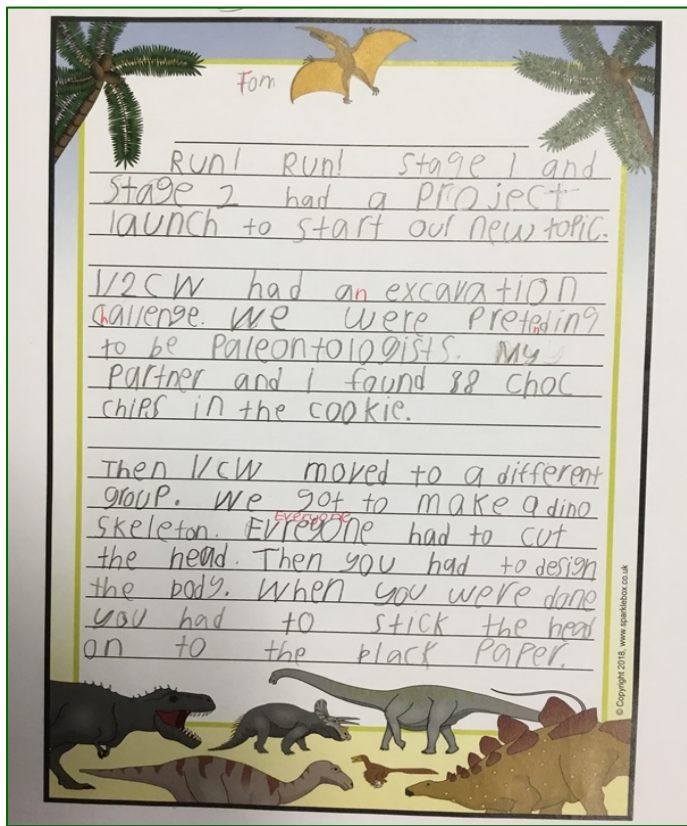 Tom
Run! Run! Stage 1 and
Stage 2 had a project
launch to start our new topic.
1/2CW had an excavation
challenge. We were pretending
to be paleontologists. My
partner and I found 88 choc
chips in the cookie.
Then 1/CW moved to a different
group. We got to make a dino
Everyone
skeleton. Evreyone had to cut
the head. Then you had to design
the body. When you were done
you had to stick the head
on to the black paper.
© Copyright 2018, www.sparklebox.co.uk